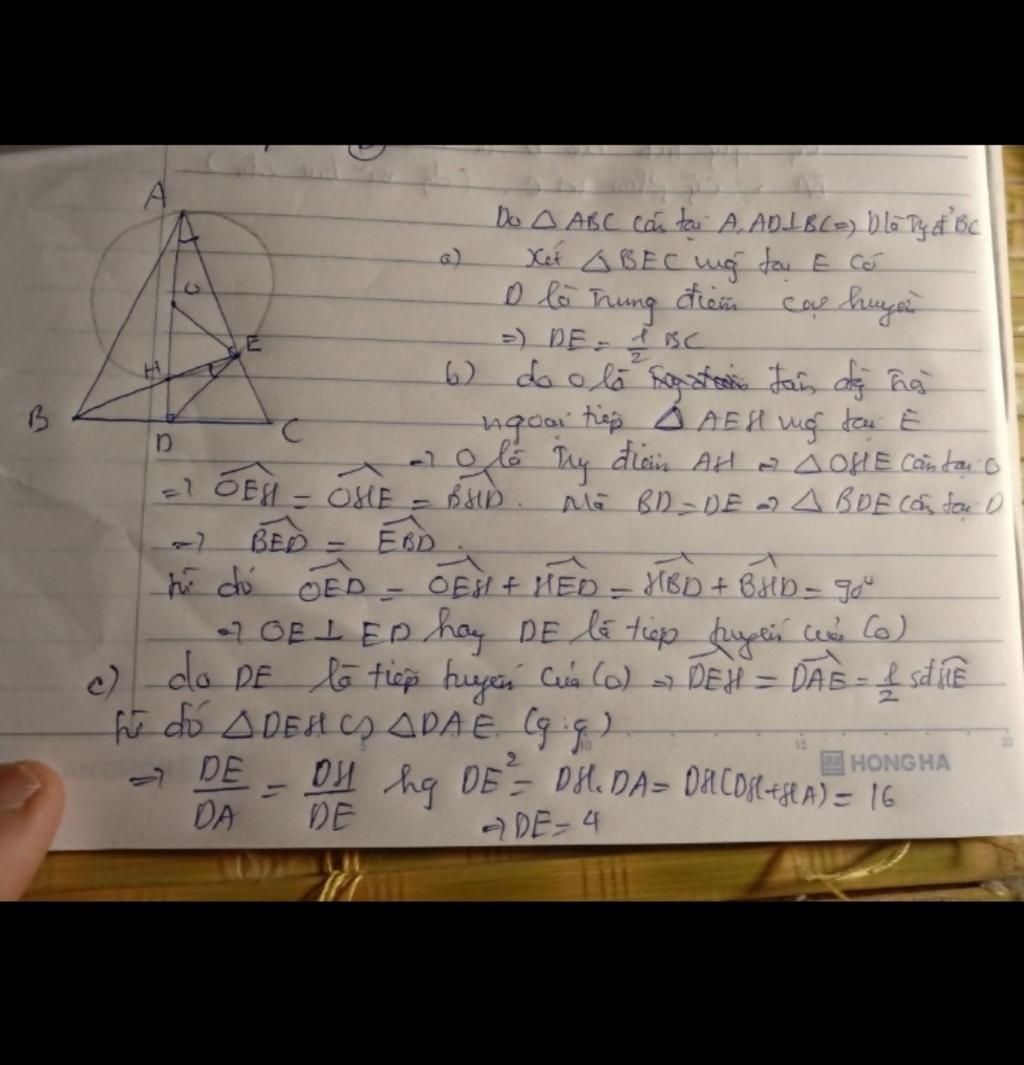 A
O
E
H
B
D
C
Do △ABC cân tại A, AD⊥BC ⇒ D là Tg đ' BC
a) Xét △BEC vug̃ tại E Có
D là Trung điểm cạh huyền
⇒ DE = 1/2 BC
b) do O là tâm đg̃ Trò
ngoại tiếp △AEH vug̃ tại E
⇒ O là Trg điểm AH ⇒ △OHE cân tại O
⇒ OEH = OHE = BHD. Mà BD = DE ⇒ △BDE cân tại D
⇒ BED = EBD.
từ đó OED = OEH + HED = HBD + BHD = 90°
⇒ OE⊥ED hay DE là tiếp tuyến của (O)
c) do DE là tiếp tuyến của (O) ⇒ DEH = DAE = 1/2 sđ HE
từ đó △DEH ∽ △DAE (g.g)
⇒ DE/DA = DH/DE hay DE² = DH.DA = DH(DH+HA) = 16
⇒ DE = 4
10 15 20
HONG HA